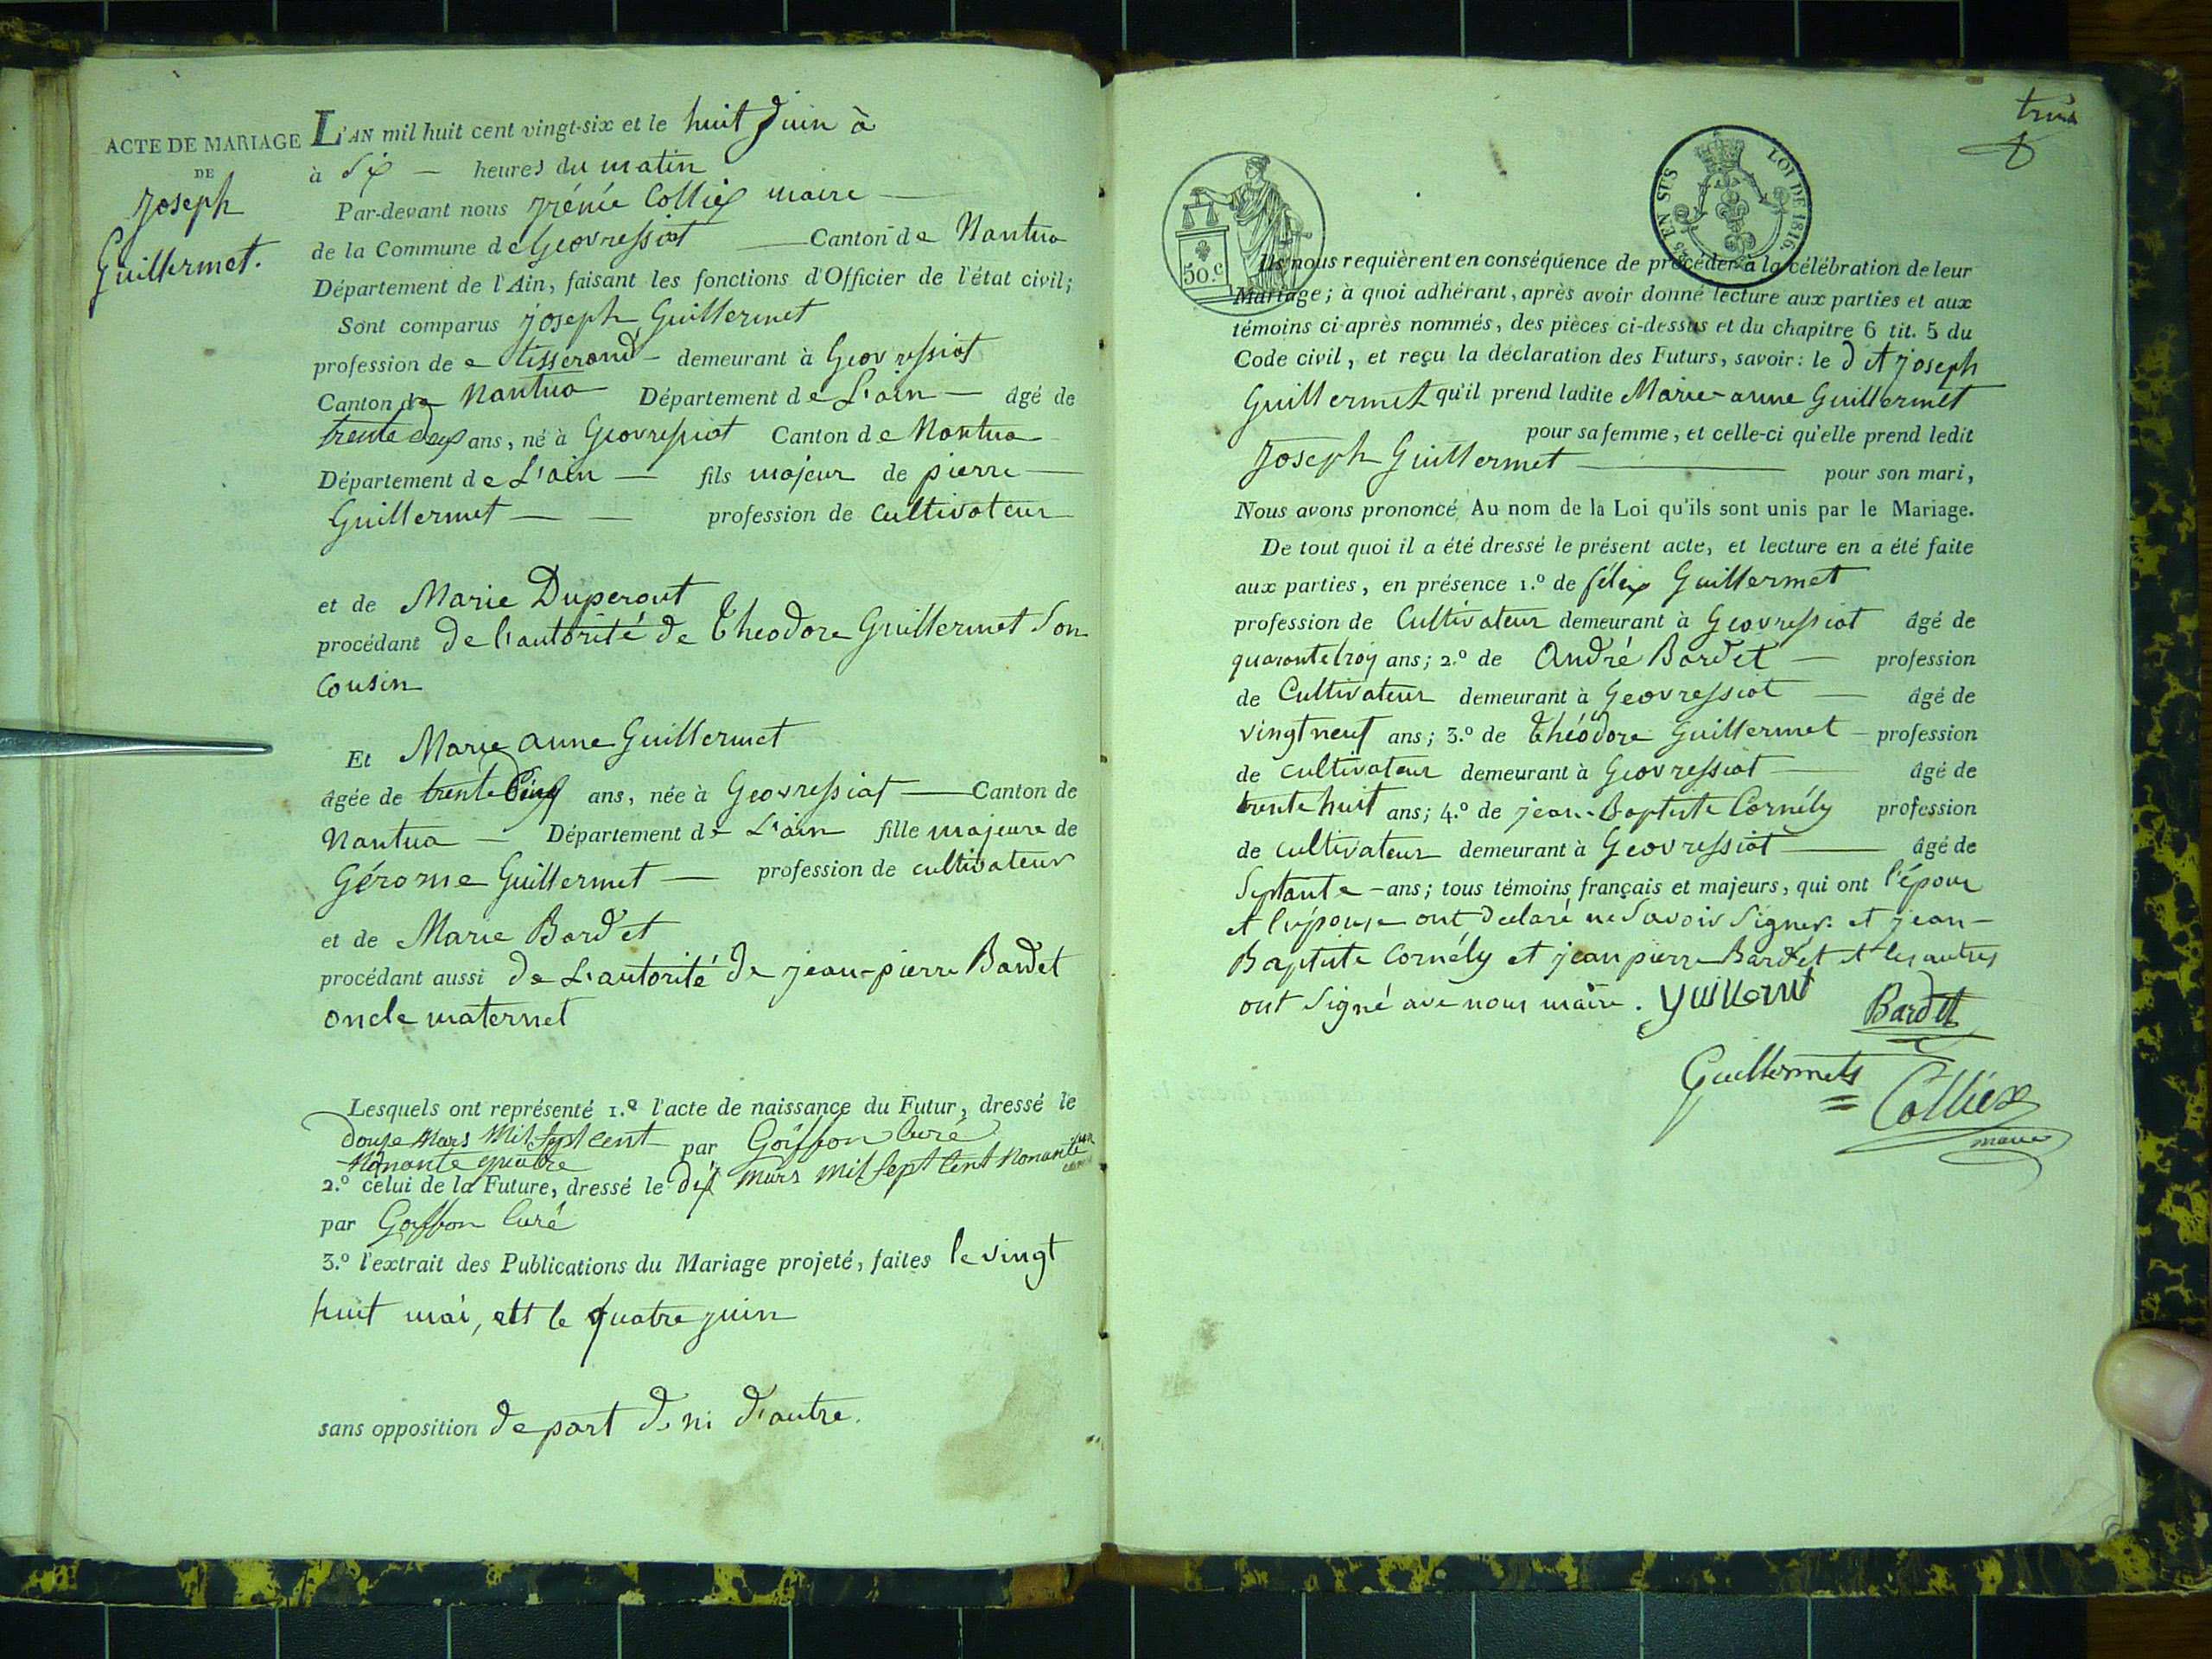 ACTE DE MARIAGE
DE
Joseph
Guillermet.
L'AN mil huit cent vingt-six et le huit Juin à
à dix — heures du matin
Par-devant nous jrénée Colliex maire —
de la Commune de Geovressiat — Canton de Nantua
Département de l'Ain, faisant les fonctions d'Officier de l'état civil;
Sont comparus joseph Guillermet
profession de tisserand - demeurant à Geovressiat
Canton de Nantua Département de L'ain — âgé de
trente deux ans, né à Geovressiat Canton de Nantua
Département de L'ain — fils majeur de pierre —
Guillermet — — profession de Cultivateur
et de Marie Duperout
procédant de l'autorité de Theodore Guillermet Son
Cousin
Et Marie anne Guillermet
âgée de trente cinq ans, née à Geovressiat — Canton de
Nantua — Département de L'ain fille majeure de
Gérome Guillermet — profession de cultivateur
et de Marie Bardet
procédant aussi de L'autorité de jean-pierre Bardet
oncle maternel
Lesquels ont représenté 1.º l'acte de naissance du Futur, dressé le
douze Mars Mil sept cent par Goiffon Curé
Nonante quatre
2.º celui de la Future, dressé le dix Mars Mil Sept Cent Nonante un
par Goiffon Curé
3.º l'extrait des Publications du Mariage projeté, faites le vingt
huit mai, ett le quatre juin
sans opposition de part d. ni d'autre.
trois
50.c
25 EN SUS
LOI DE 1816.
Ils nous requièrent en conséquence de procéder à la célébration de leur
Mariage; à quoi adhérant, après avoir donné lecture aux parties et aux
témoins ci-après nommés, des pièces ci-dessus et du chapitre 6 tit. 5 du
Code civil, et reçu la déclaration des Futurs, savoir: le dit joseph
Guillermet qu'il prend ladite Marie-anne Guillermet
pour sa femme, et celle-ci qu'elle prend ledit
Joseph Guillermet — pour son mari,
Nous avons prononcé Au nom de la Loi qu'ils sont unis par le Mariage.
De tout quoi il a été dressé le présent acte, et lecture en a été faite
aux parties, en présence 1.º de félix Guillermet
profession de Cultivateur demeurant à Geovressiat âgé de
quarante troy ans; 2.º de André Bardet — profession
de Cultivateur demeurant à Geovressiat — âgé de
vingt neuf ans; 3.º de Théodore Guillermet — profession
de cultivateur demeurant à Geovressiat — âgé de
trente huit ans; 4.º de jean-Baptiste Cornély profession
de cultivateur demeurant à Geovressiat — âgé de
Septante - ans; tous témoins français et majeurs, qui ont l'époux
et l'épouse ont declaré ne Savoir Signer. et jean-
Baptiste Cornély et jean pierre Bardet et les autres
ont Signé ave nous maire. guillermt
Bardet
Guillermets
Colliex
maire